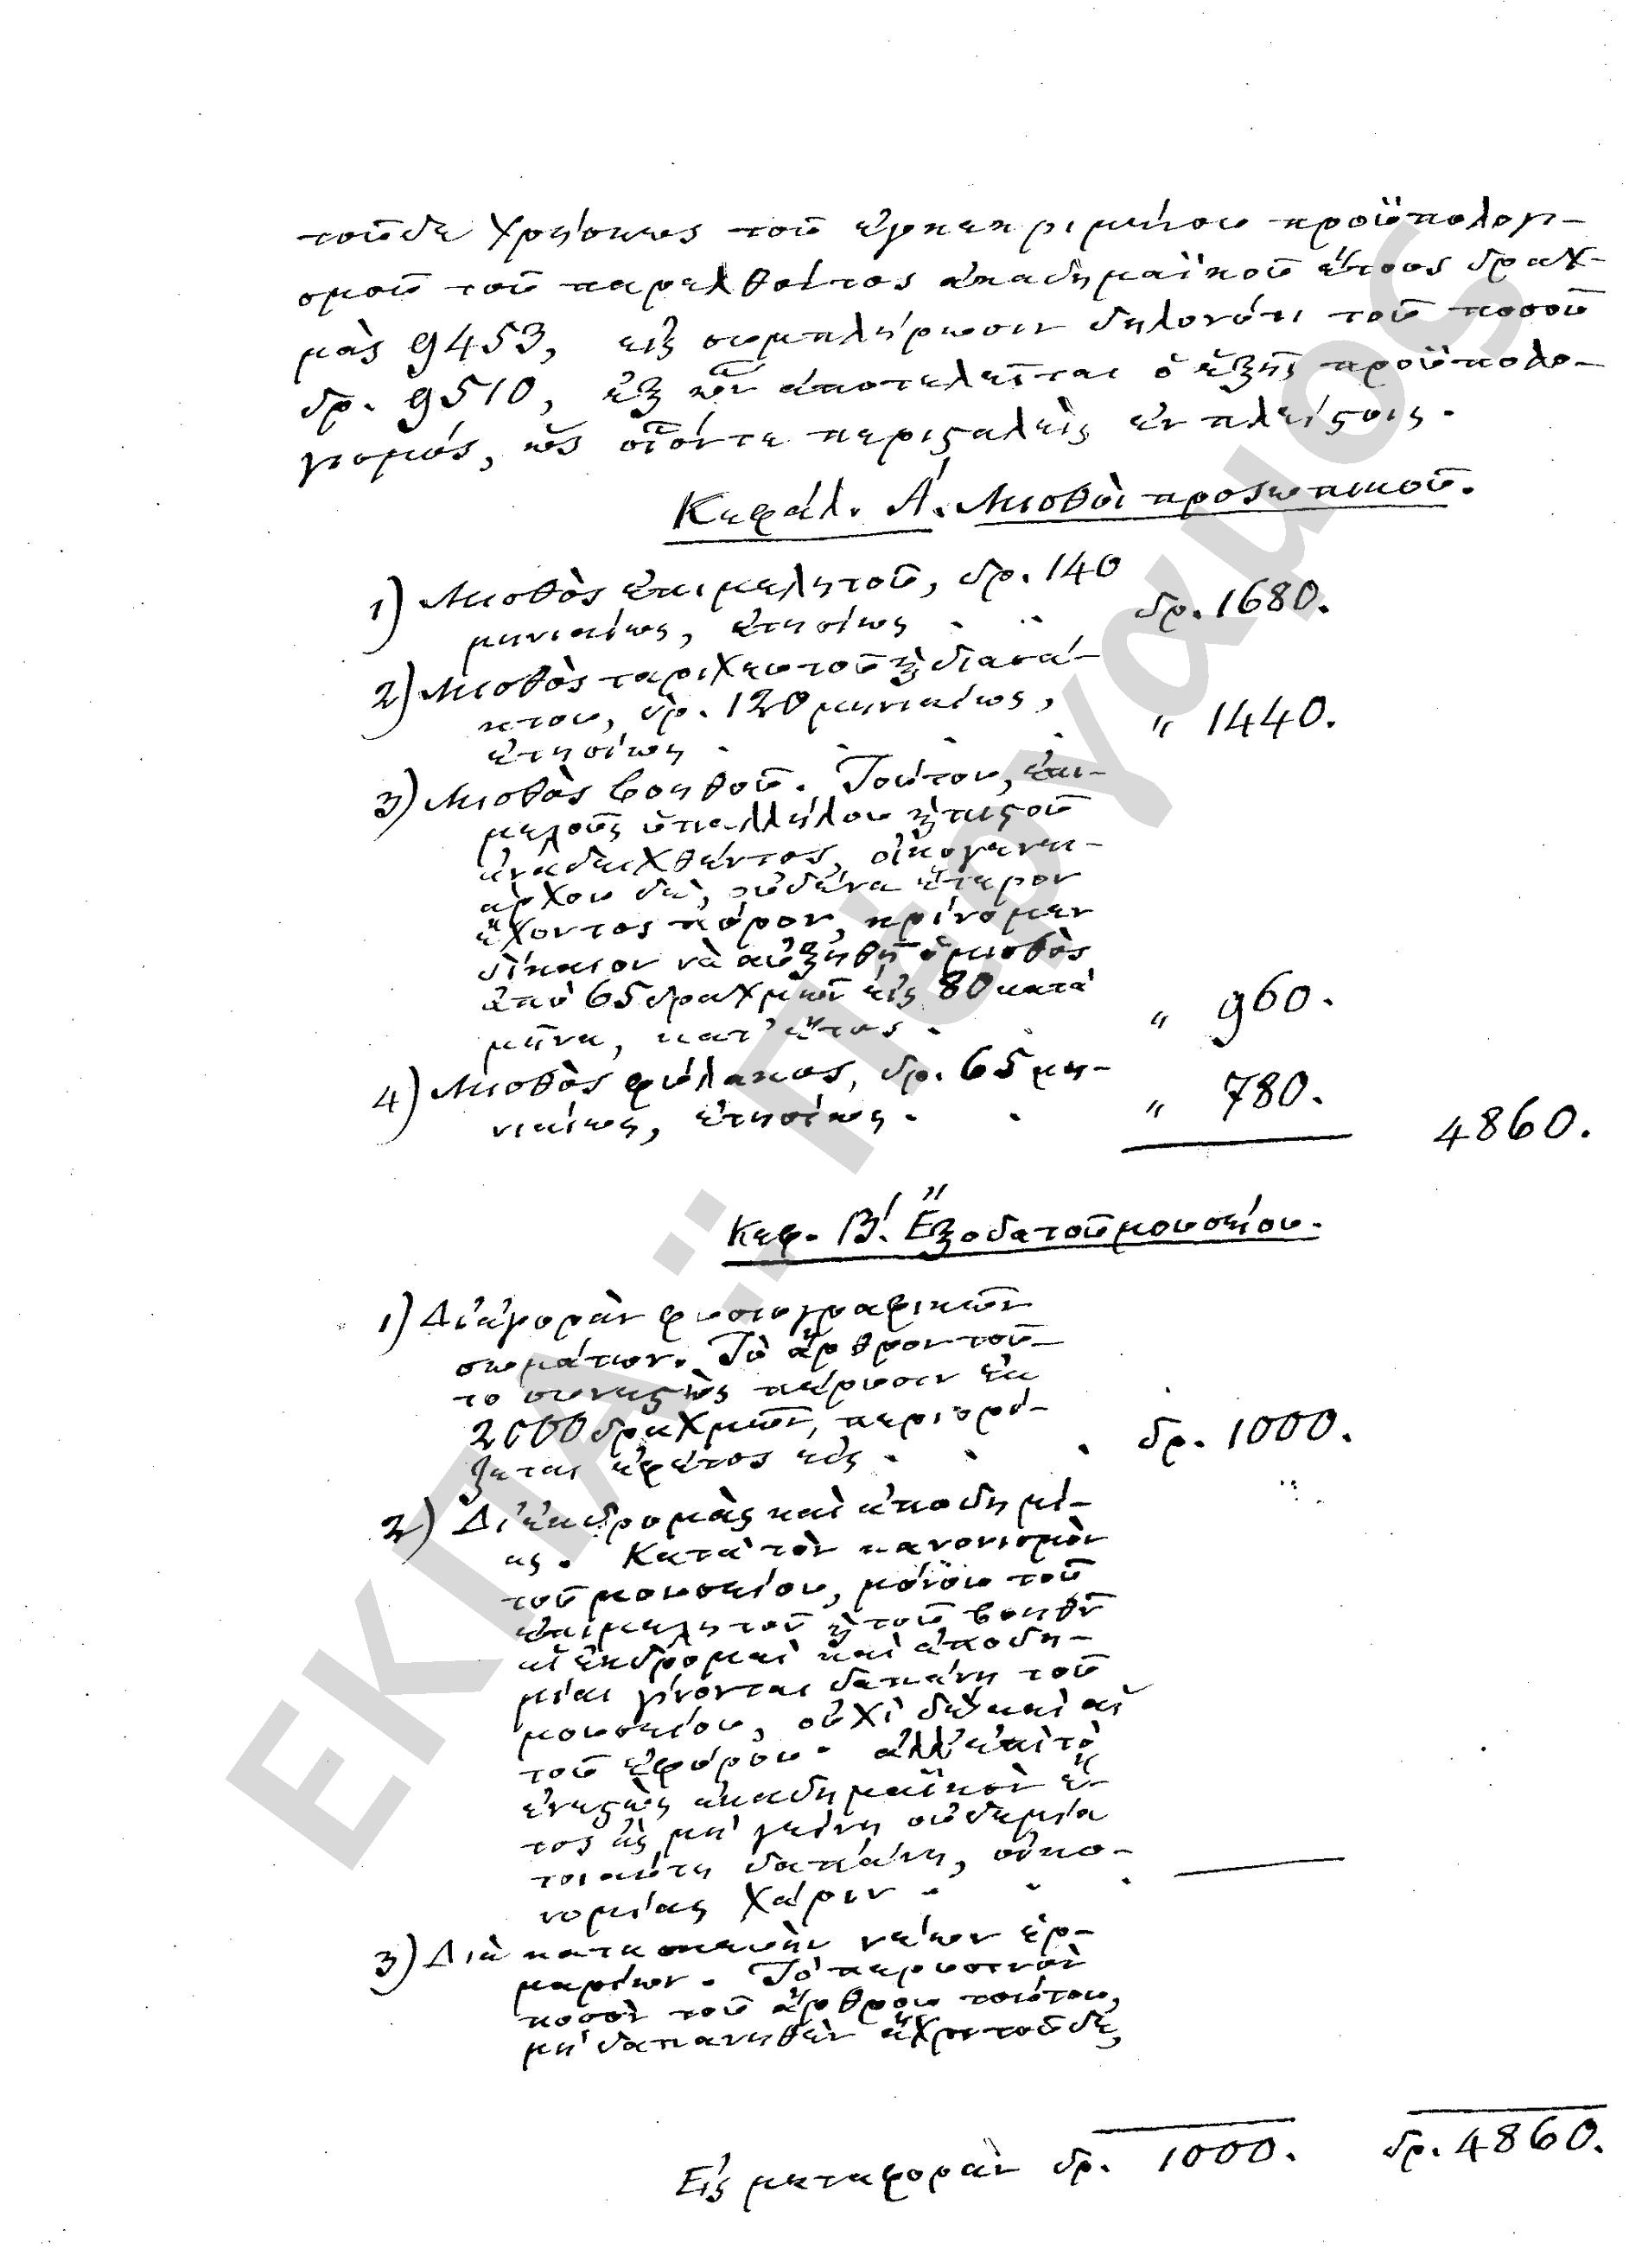 τοῦδε χρήσεως τοῦ ἐγκεκριμένου προϋπολογι-
σμοῦ τοῦ παρελθόντος ἀκαδημαϊκοῦ ἔτους δραχ-
μὰς 9453, εἰς συμπλήρωσιν δηλονότι τοῦ ποσοῦ
δρ. 9510, ἐξ ὧν ἀποτελεῖται ὁ ἑξῆς προϋπολο-
γισμός, ὡς οἷόντε περισταλεὶς ἐν πλείστοις.
Κεφάλ. Α΄. Μισθοὶ προσωπικοῦ.
1) Μισθὸς ἐπιμελητοῦ, δρ. 140
μηνιαίως, ἐτησίως . . δρ. 1680.
2) Μισθὸς ταριχευτοῦ ϗ διατά-
κτου, δρ. 120 μηνιαίως,
ἐτησίως . . . . " 1440.
3) Μισθὸς βοηθοῦ. Τούτου, ἐπι-
μελοῦς ὑπαλλήλου ϗ πιστοῦ
ἀναδειχθέντος, οἰκογενει-
άρχου δὲ, οὐδένα ἕτερον
ἔχοντος πόρον, κρίνομεν
δίκαιον νὰ αὐξηθῇ ὁ μισθὸς
ἀπὸ 65 δραχμῶν εἰς 80 κατὰ
μῆνα, κατ' ἔτος . . " 960.
4) Μισθὸς φύλακος, δρ. 65 μη-
νιαίως, ἐτησίως . . " 780. 4860.
Κεφ. Β΄. Ἔξοδα τοῦ μουσείου.
1) Δι' ἀγορὰν φυσιογραφικῶν
σωμάτων. Τὸ ἄρθρον τοῦ-
το συνεστὼς πέρυσιν ἐκ
2000 δραχμῶν, περιορί-
ζεται ἐφέτος εἰς . . . δρ. 1000.
2) Δι' ἐκδρομὰς καὶ ἀποδημί-
ας. Κατὰ τὸν κανονισμὸν
τοῦ μουσείου, μόνου τοῦ
ἐπιμελητοῦ ϗ τοῦ βοηθοῦ
αἱ ἐκδρομαὶ καὶ ἀποδη-
μίαι γίνονται δαπάνῃ τοῦ
μουσείου, οὐχὶ δὲ καὶ αἱ
τοῦ ἐφόρου· ἀλλ' ἐπὶ τὸ
ἐνεστὼς ἀκαδημαϊκὸν ἔ-
τος ἂς μὴ γείνῃ οὐδεμία
τοιαύτη δαπάνη, οἰκο-
νομίας χάριν . . .
3) Διὰ κατασκευὴν νέων ἑρ-
μαρίων. Τὸ περυσινὸν
ποσὸν τοῦ ἄρθρου τούτου,
μὴ δαπανηθὲν ἄχρι τοῦδε,
Εἰς μεταφορὰν δρ. 1000. δρ. 4860.
ΕΚΠΑ.: Πέργαμος